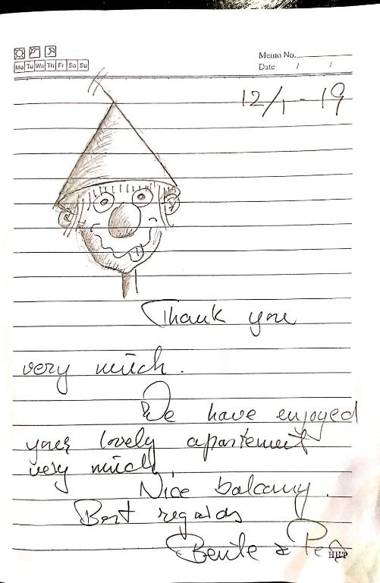 Mo Tu We Th Fr Sa Su
Memo No.
Date / /
12/1-19
Thank you
very much.
We have enjoyed
your lovely apartement
very much,
Nice balcony.
Best regards
Bente &